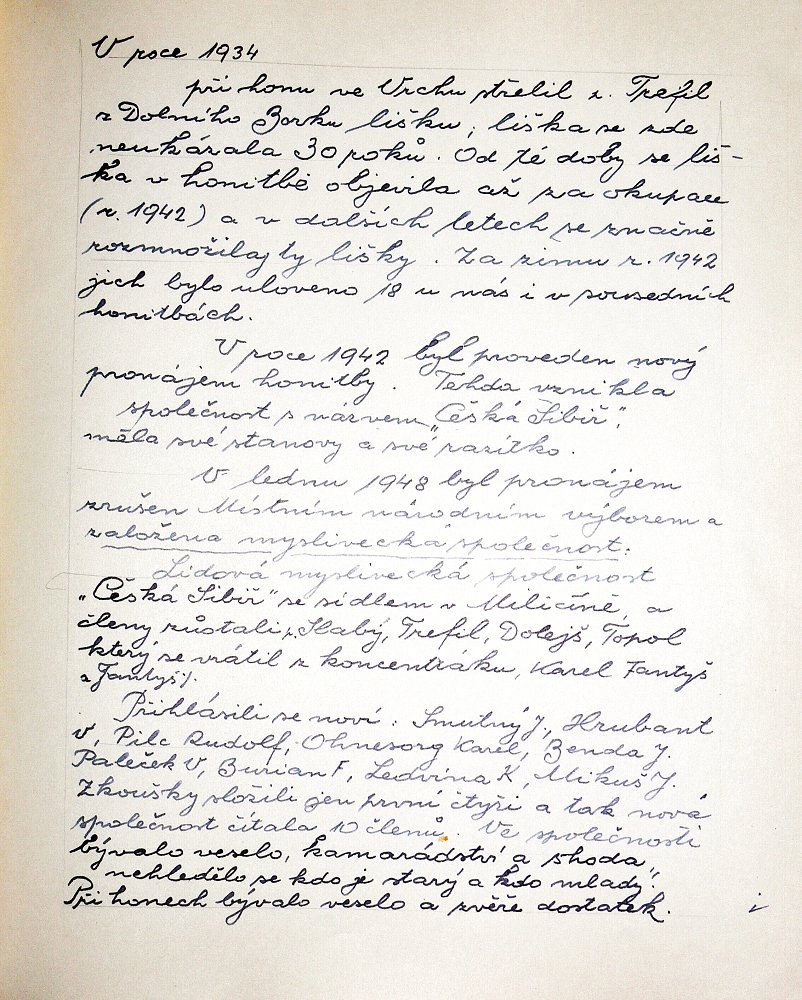 V roce 1934
při honu ve Vrchu střelil z. Trefil
z Dolního Borku lišku, liška se zde
neukázala 30 roků. Od té doby se liš-
ka v honitbě objevila až za okupace
(r. 1942) a v dalších letech se značně
rozmnožila, ty lišky. Za zimu r. 1942
jich bylo uloveno 18 u nás i v sousedních
honitbách.
V roce 1942 byl proveden nový
pronájem honitby. Tehda vznikla
společnost s názvem „Česká Sibiř",
měla své stanovy a své razítko.
V lednu 1948 byl pronájem
zrušen Místním národním výborem a
založena myslivecká společnost:
Lidová myslivecká společnost
„Česká Sibiř" se sídlem v Miličíně, a
členy zůstali, Slabý, Trefil, Dolejš, Topol
který se vrátil z koncentráku, Karel Fantyš
a Fantyš J.
Přihlásili se noví: Smutný J., Hrubant
V, Pilc Rudolf, Ohnesorg Karel, Benda J.
Paleček V, Burian F, Ledvina K, Mikuš J.
Zkoušky složili jen první čtyři a tak nová
společnost čítala 10 členů. Ve společnosti
bývalo veselo, kamarádství a shoda,
nehledělo se kdo je starý a kdo mladý.
Při honech bývalo veselo a zvěře dostatek.